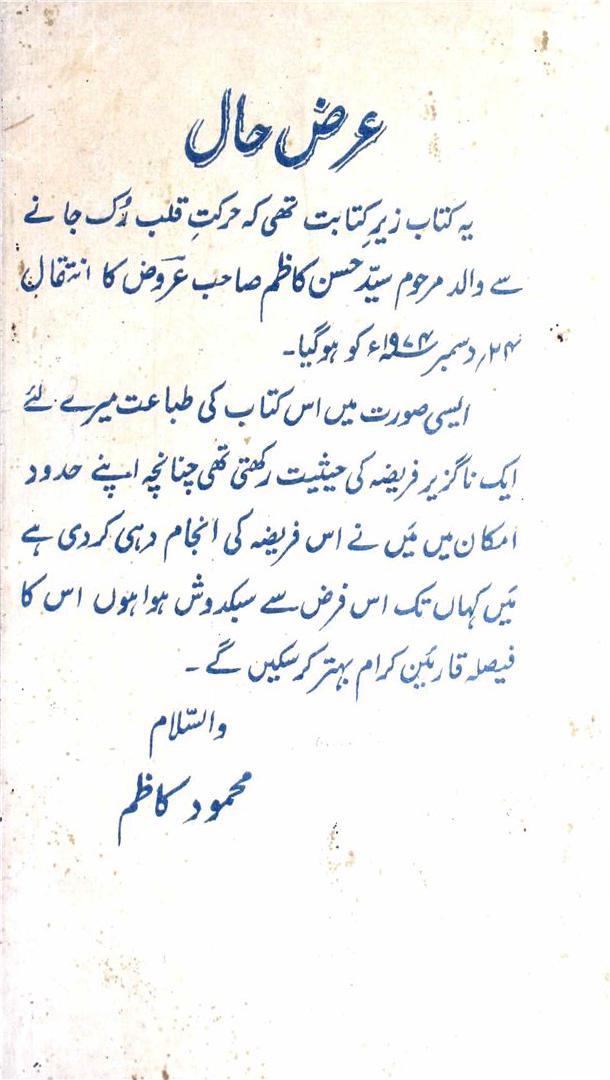 عرض حال
یہ کتاب زیرِ کتابت تھی کہ حرکتِ قلب رُک جانے
سے والد مرحوم سیّد حسن کاظم صاحب عروضؔ کا انتقال
۲۴؍ دسمبر ۱۹۷۴ء کو ہوگیا۔
ایسی صورت میں اس کتاب کی طباعت میرے لئے
ایک ناگزیر فریضہ کی حیثیت رکھتی تھی چنانچہ اپنے حدود
امکان میں مَیں نے اس فریضہ کی انجام دہی کردی ہے
مَیں کہاں تک اس فرض سے سبکدوش ہوا ہوں اس کا
فیصلہ قارئین کرام بہتر کرسکیں گے۔
والسّلام
محمود کاظم